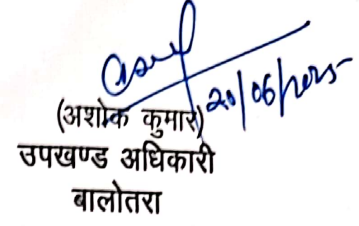 20/06/2025
(अशोक कुमार)
उपखण्ड अधिकारी
बालोतरा